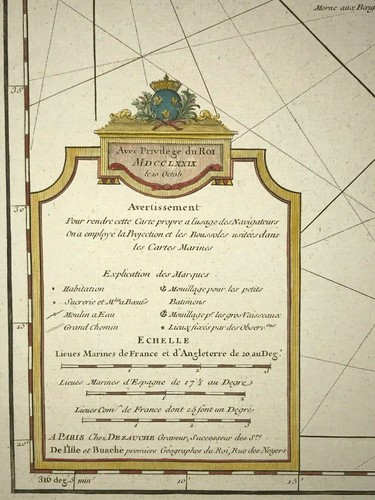 Morne aux Bœufs
35'
Avec Privilege du ROI
MDCCLXXIX
le 10 Octob.
Avertissement
30'
Pour rendre cette Carte propre a l'usage des Navigateurs
On a employé la Projection et les Boussoles usitées dans
les Cartes Marines
Explication des Marques
Habitation
Sucrerie et M.ⁱⁿ a Bœufs
Moulin a Eau
Grand Chemin
Mouillage pour les petits
Batimens
Mouillage pʳ. les gros Vaisseaux
Lieux fixés par des Observ.ᵒⁿˢ
ECHELLE
Lieues Marines de France et d'Angleterre de 20 au Deg.
25'
Lieues Marines d'Espagne de 17½ au Degre
Lieues Com. de France dont 25 font un Degré
A PARIS Chez DEZAUCHE Graveur, Successeur des Sʳˢ.
De l'Isle et Buache premiers Géographes du Roi, Rue des Noyers
20'
316 deg. 5 min.
10'
15'